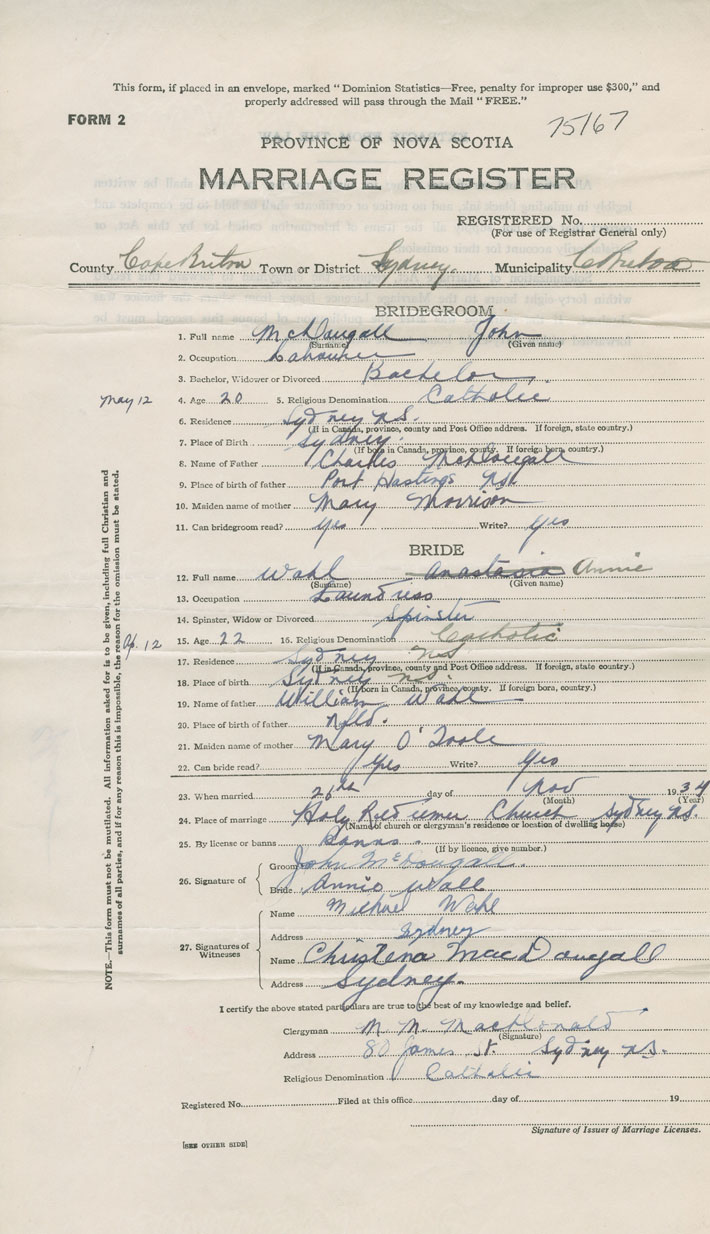 This form, if placed in an envelope, marked "Dominion Statistics—Free, penalty for improper use $300," and
properly addressed will pass through the Mail "FREE."
FORM 2
75167
PROVINCE OF NOVA SCOTIA
MARRIAGE REGISTER
REGISTERED No.
(For use of Registrar General only)
County Cape Breton Town or District Sydney. Municipality C Breton
BRIDEGROOM
1. Full name McDougall John
(Surname) (Given name)
2. Occupation Labourer
3. Bachelor, Widower or Divorced Bachelor.
May 12
4. Age 20 5. Religious Denomination Catholic
6. Residence Sydney N.S.
(If in Canada, province, county and Post Office address. If foreign, state country.)
7. Place of Birth Sydney.
(If born in Canada, province, county. If foreign born, country.)
8. Name of Father Charles McDougall
9. Place of birth of father Port Hastings N.S.
10. Maiden name of mother Mary Morrison
11. Can bridegroom read? Yes Write? Yes
BRIDE
12. Full name Wahl Anastasia Annie
(Surname) (Given name)
13. Occupation Laundress
14. Spinster, Widow or Divorced Spinster
Ap. 12
15. Age 22 16. Religious Denomination Catholic
17. Residence Sydney NS
(If in Canada, province, county and Post Office address. If foreign, state country.)
18. Place of birth Sydney N.S.
(If born in Canada, province, county. If foreign born, country.)
19. Name of father William Wahl
20. Place of birth of father Nfld.
21. Maiden name of mother Mary O'Toole
22. Can bride read? Yes Write? Yes
23. When married 26th day of Nov 1934
(Month) (Year)
24. Place of marriage Holy Redeemer Church Sydney N.S.
(Name of church or clergyman's residence or location of dwelling house)
25. By license or banns Banns.
(If by licence, give number.)
26. Signature of
Groom John McDougall.
Bride Annie Wall
27. Signatures of Witnesses
Name Michael Wahl
Address Sydney
Name Christena MacDougall
Address Sydney.
I certify the above stated particulars are true to the best of my knowledge and belief.
Clergyman M. M. MacDonald
(Signature)
Address 80 James St. Sydney N.S.
Religious Denomination Catholic
Registered No. Filed at this office day of 19
Signature of Issuer of Marriage Licenses.
[SEE OTHER SIDE]
NOTE.—This form must not be mutilated. All information asked for is to be given, including full Christian and
surnames of all parties, and if for any reason this is impossible, the reason for the omission must be stated.